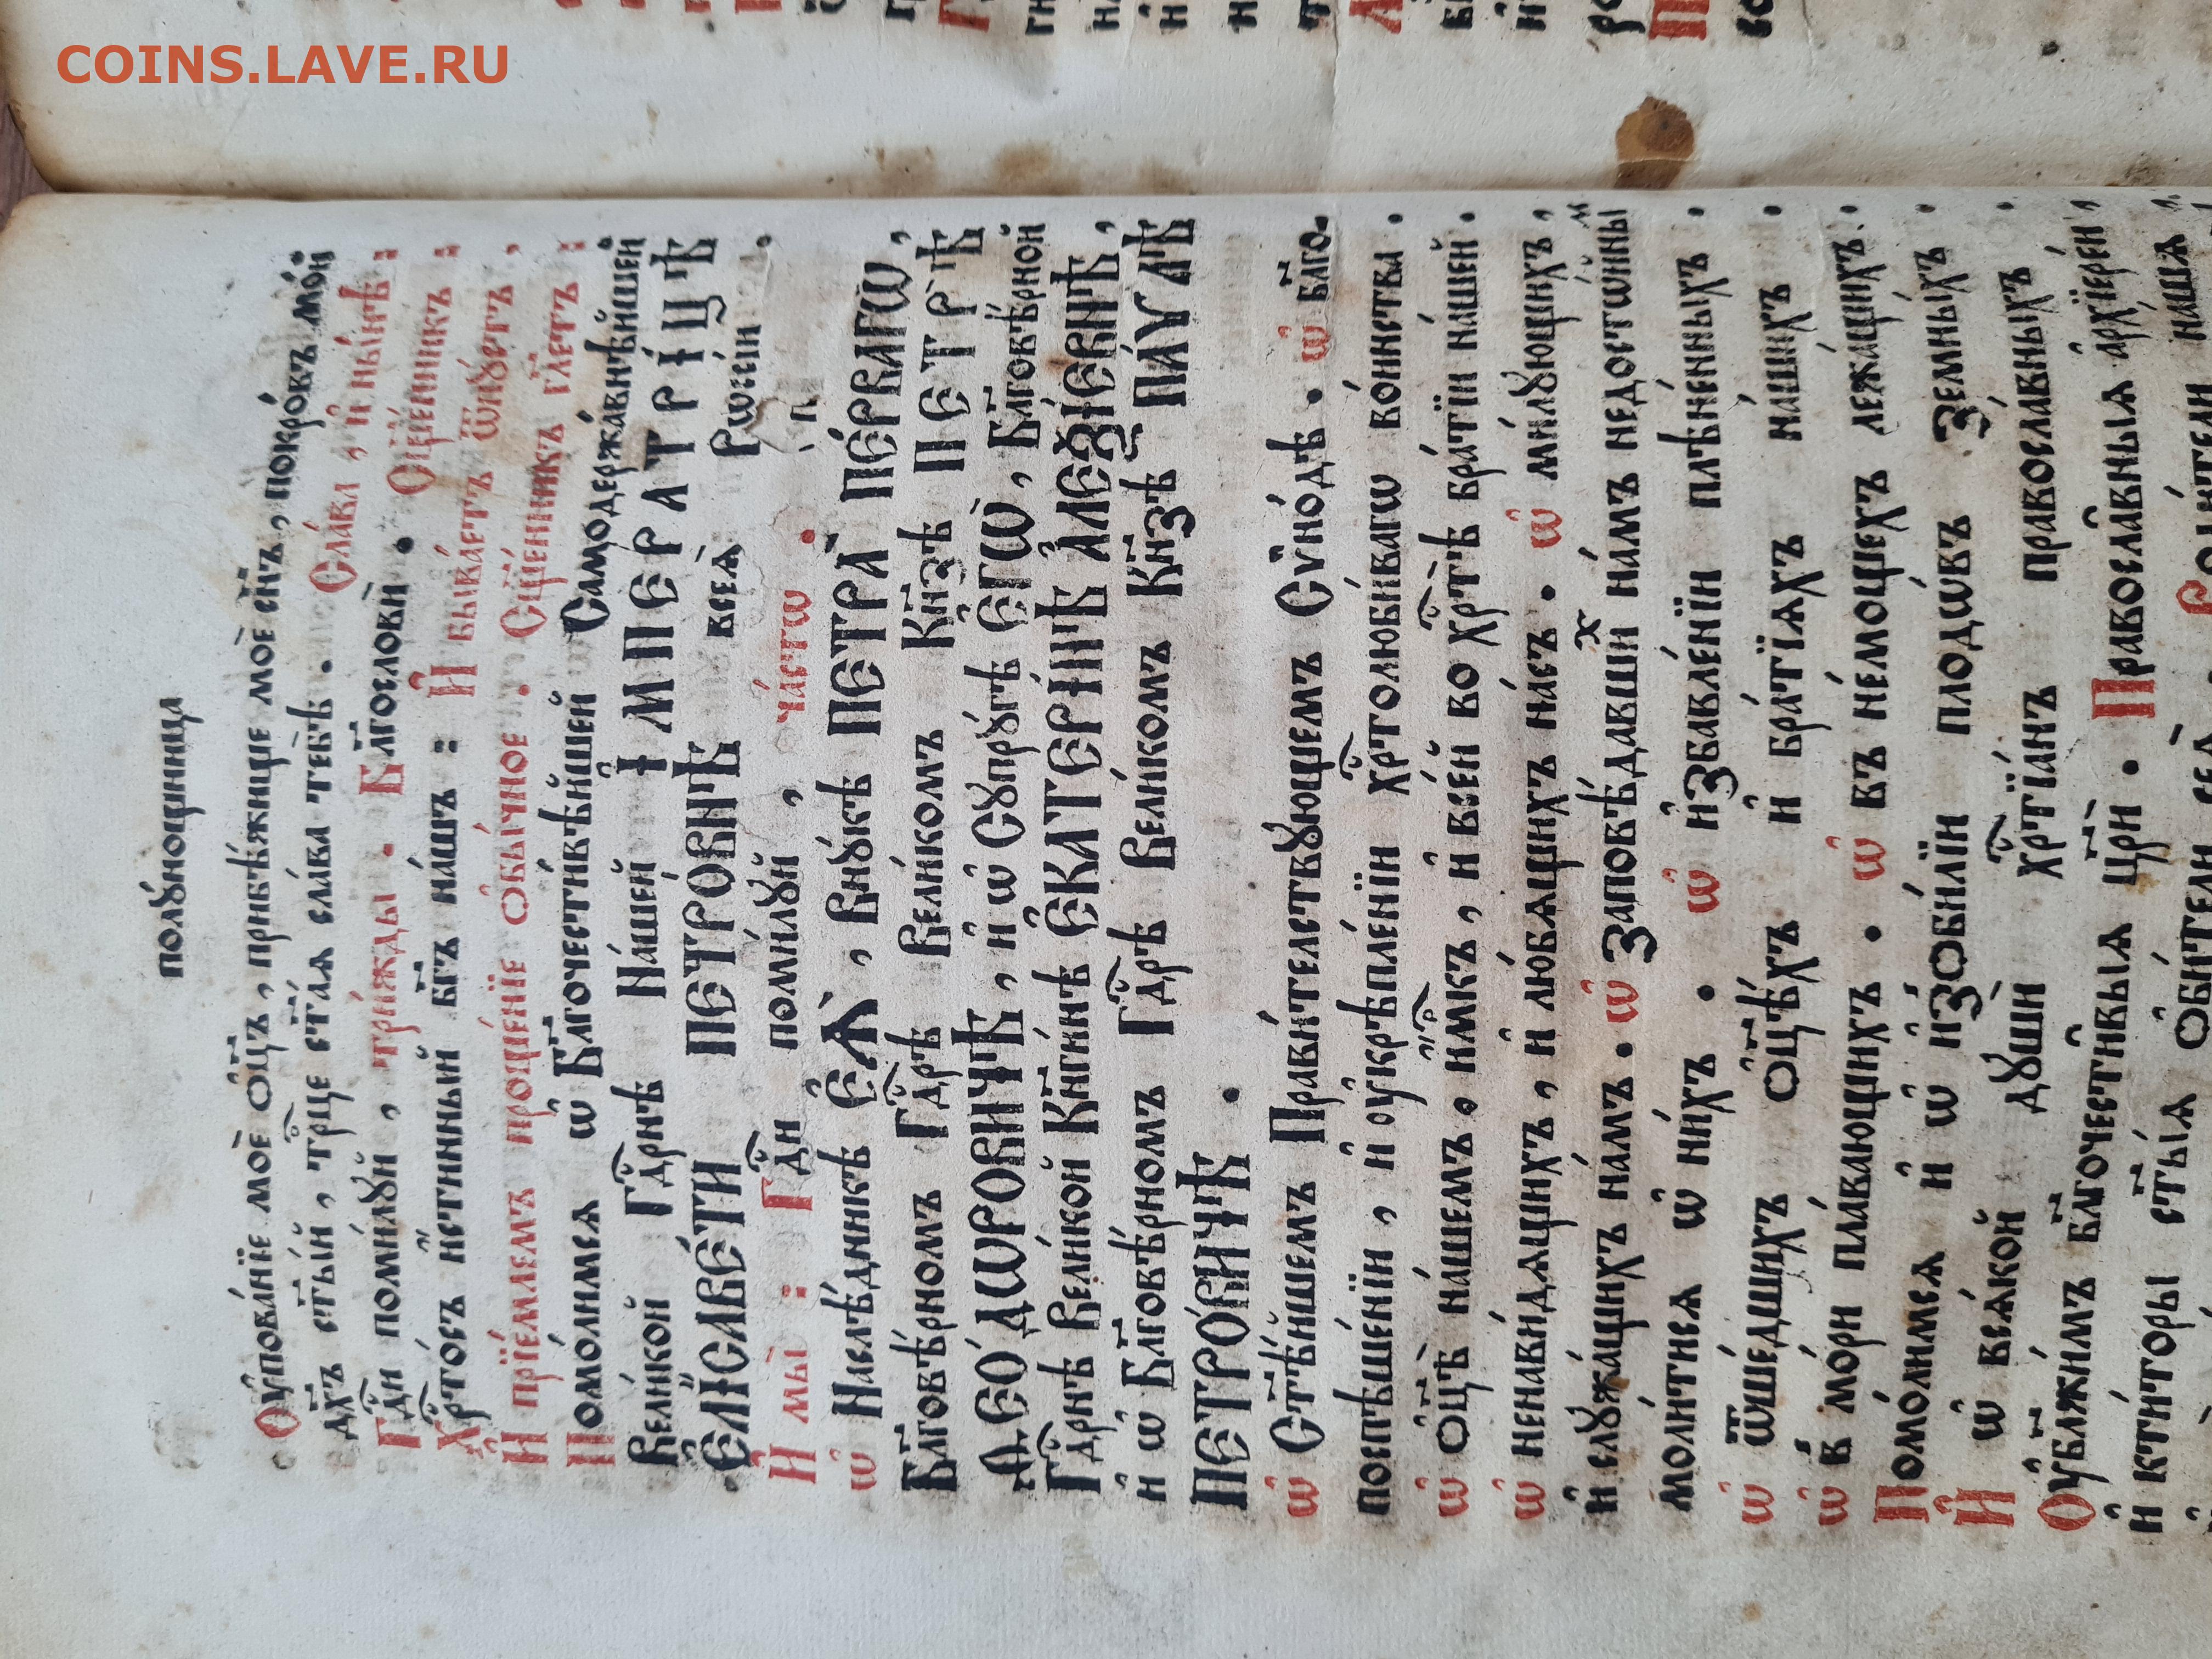 COINS.LAVE.RU
полꙋ́нощница
Оу҆пова́нїе моѐ ѻ҆ц҃ъ, прибѣ́жище моѐ сн҃ъ, покро́въ мо́й
дх҃ъ ст҃ы́й, трⷪ҇це ст҃а́ѧ сла́ва тебѣ̀. Сла́ва, и҆ ны́нѣ:
Гдⷭ҇и поми́лꙋй, три́жды. Бл҃гословѝ. Сщ҃е́нникъ:
Хрⷭ҇то́съ и҆́стинный бг҃ъ на́шъ: И҆ быва́етъ ѿпꙋ́стъ,
И҆ прїе́млемъ проще́нїе ѻ҆бы́чное. Сщ҃е́нникъ гл҃етъ:
Помо́лимсѧ ѡ҆ Бл҃гочести́вѣйшей Самодержа́внѣйшей
Вели́кой Гдⷭ҇рнѣ На́шей І҆МПЕРАТРІ́ЦѢ
Е҆ЛІСАВЕ́ТѢ ПЕТРО́ВНѢ всеѧ̀ Рѡссі́и
И҆ мы̀: Гдⷭ҇и поми́лꙋй, ча́стѡ.
ѡ҆ Наслѣ́дникѣ Е҆Ѧ̀, Внꙋ́кѣ ПЕТРА̀ ПЕ́РВАГѠ,
Бл҃говѣ́рномъ Гдⷭ҇рѣ Вели́комъ Кн҃зѣ ПЕТРѢ̀
ѲЕО́ДѠРОВИЧѢ, и҆ ѡ҆ Сꙋпрꙋ́гѣ Е҆ГѠ̀, Бл҃говѣ́рной
Гдⷭ҇рнѣ Вели́кой Кнг҃и́нѣ Е҆КАТЕРІ́НѢ А҆ЛЕѮІ́ЕВНѢ,
и҆ ѡ҆ Бл҃говѣ́рномъ Гдⷭ҇рѣ Вели́комъ Кн҃зѣ ПА́ѴЛѢ
ПЕТРО́ВИЧѢ.
ѡ҆ Ст҃ѣ́йшемъ Прави́тельствꙋющемъ Сѵно́дѣ. ѡ҆ бл҃го-
поспѣше́нїи, и҆ оу҆крѣпле́нїи хрⷭ҇толюби́вагѡ во́инства.
ѡ҆ ѻ҆ц҃ѣ̀ на́шемъ, и҆мⷬ҇къ, и҆ все́й во хрⷭ҇тѣ̀ бра́тїи на́шей.
ѡ҆ ненави́дѧщихъ, и҆ лю́бѧщихъ на́съ. ѡ҆ ми́лꙋющихъ,
и҆ слꙋжа́щихъ на́мъ. ѡ҆ заповѣ́давшихъ на́мъ недостѡ́йнымъ
моли́тисѧ ѡ҆ ни́хъ. ѡ҆ и҆збавле́нїи плѣне́нныхъ.
ѡ҆ ѿше́дшихъ ѻ҆ц҃ѣ́хъ и҆ бра́тїѧхъ на́шихъ.
ѡ҆ в̾ мо́ри пла́вающихъ. ѡ҆ въ не́мощехъ лежа́щихъ.
Помо́лимсѧ и҆ ѡ҆ и҆зоби́лїи плодѡ́въ земны́хъ.
И҆ ѡ҆ всѧ́кой дꙋшѝ хрⷭ҇тїа́нъ правосла́вныхъ.
Оу҆бл҃жи́мъ бл҃гочести́выѧ цр҃ѝ. Правосла̑вныѧ а҆рхїере́и,
и҆ кти́торы ст҃ы́ѧ ѻ҆би́тели сеѧ̀. Роди́тели на́шѧ,